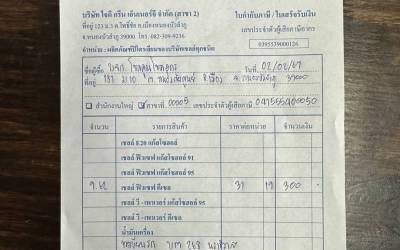 บริษัท โชติ กรีน เอ็นเนอร์ยี จำกัด (สาขา 2)
ที่อยู่ 123 ม.5 ต.โพธิ์ชัย อ.เมืองหนองบัวลำภู
จ.หนองบัวลำภู 39000 โทร. 082-309-9236
จำหน่าย : ผลิตภัณฑ์ปิโตรเลียมของบริษัทเชลล์ทุกชนิด
ใบกำกับภาษี / ใบเสร็จรับเงิน
เลขประจำตัวผู้เสียภาษีอากร
0395539000126
ชื่อผู้ซื้อ วันที่ 02/02/67
ที่อยู่ 39000
สำนักงานใหญ่ สาขาที่ 00005 เลขประจำตัวผู้เสียภาษี
จำนวน รายการสินค้า ราคาต่อหน่วย จำนวนเงิน
เชลล์ E.20 แก๊สโซฮอลล์
เชลล์ ฟิวเซฟ แก๊สโซฮอลล์ 91
เชลล์ ฟิวเซฟ แก๊สโซฮอลล์ 95
9.62 เชลล์ ฟิวเซฟ ดีเซล 31 19 300 -
เชลล์ วี - เพาเวอร์ แก๊สโซฮอลล์ 95
เชลล์ วี - เพาเวอร์ ดีเซล
น้ำมันเครื่อง